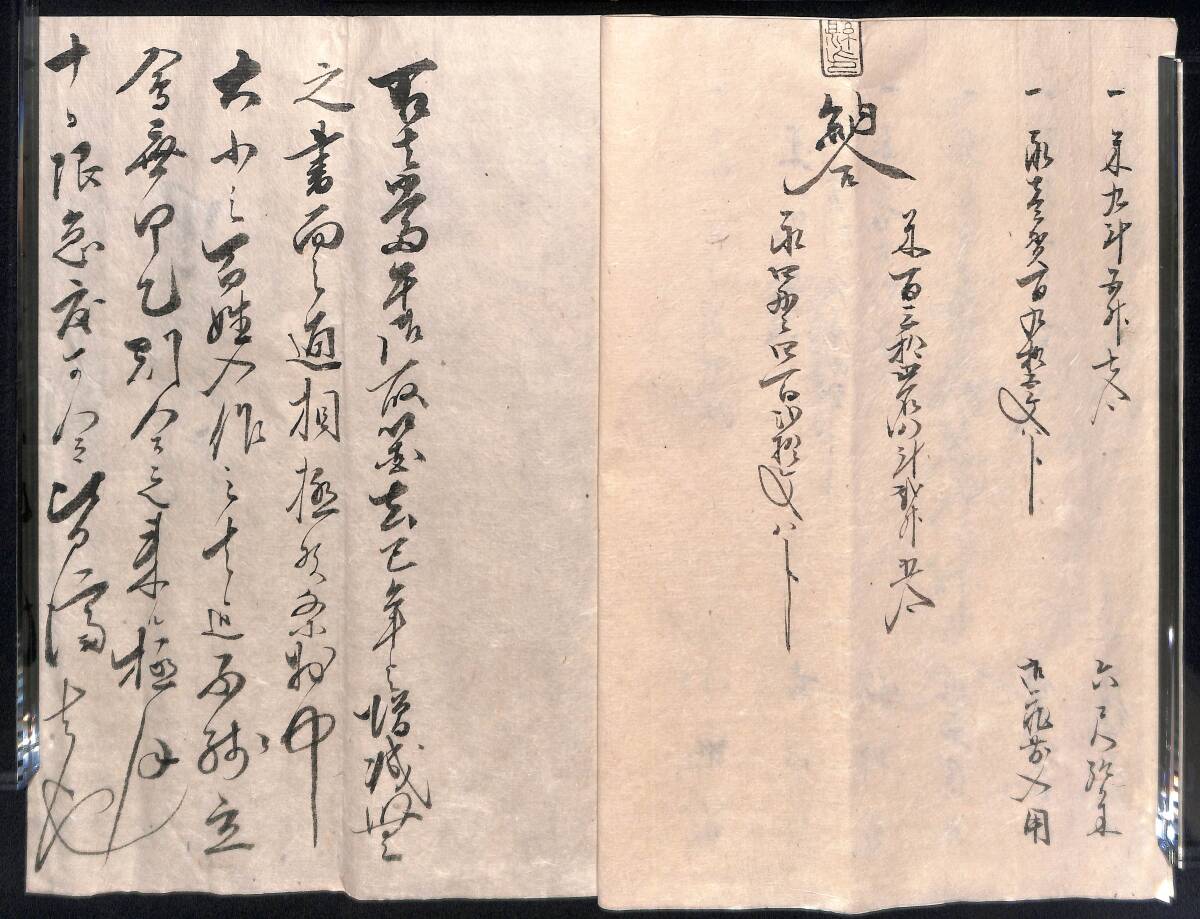 一 米九斗五升七合 六尺給米
一 永壱貫百九拾壱文八分 御蔵前入用
納合
米百三拾四石四斗弐升五合
永四貫四百四拾文八分
右者当午年御取箇去巳年之増減無
之書面之通相極候条村中
大小之百姓入作之者迄不残立
会無甲乙割合之来ル極月
十日限急度可令皆済者也